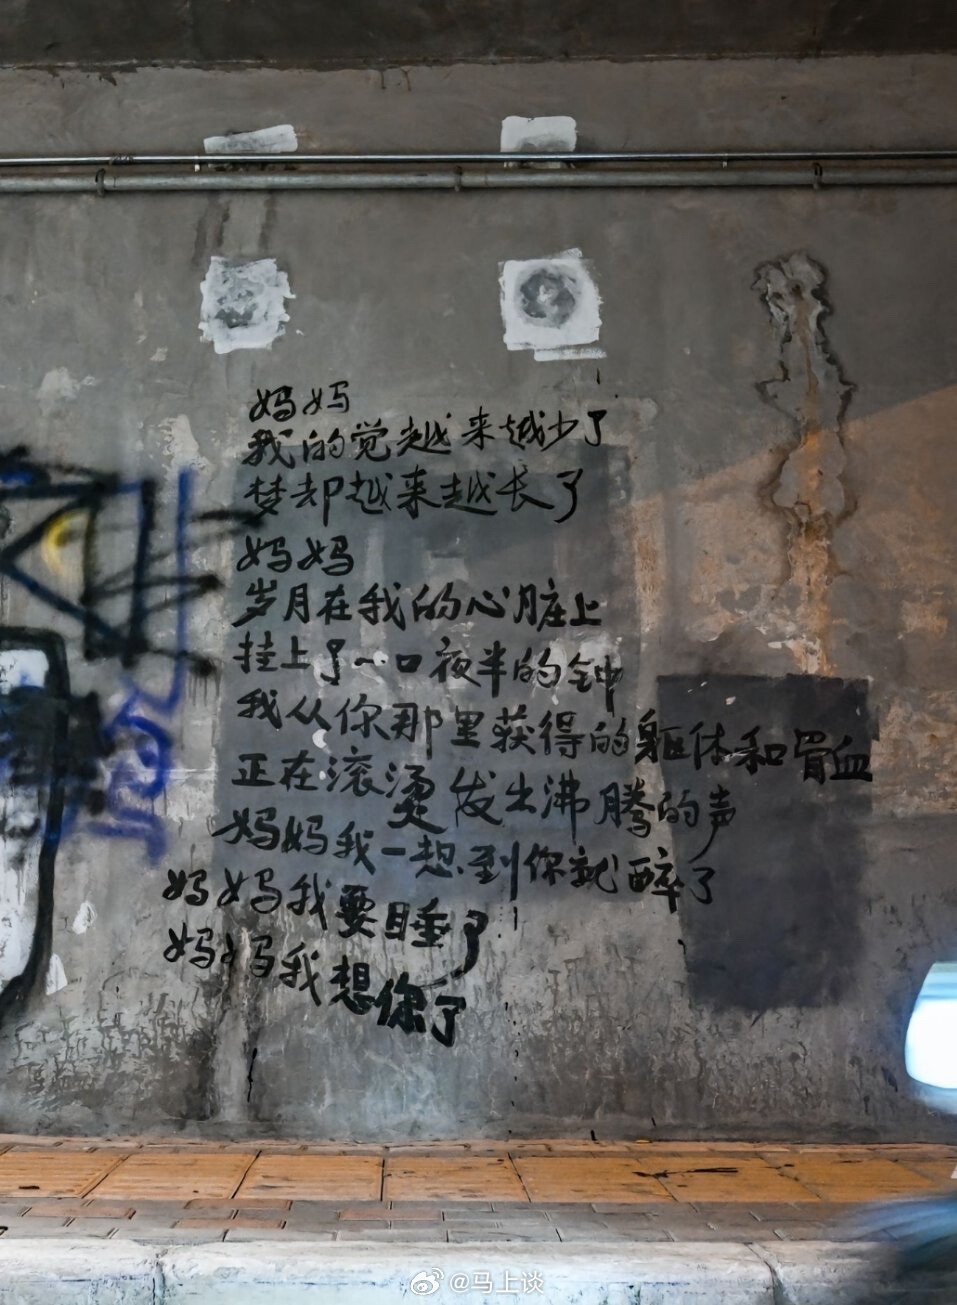 妈妈
我的觉越来越少了
梦却越来越长了
妈妈
岁月在我的心脏上
挂上了一口夜半的钟
我从你那里获得的躯体和骨血
正在滚烫发出沸腾的声
妈妈我一想到你就醉了
妈妈我要睡了
妈妈我想你了
@马上谈